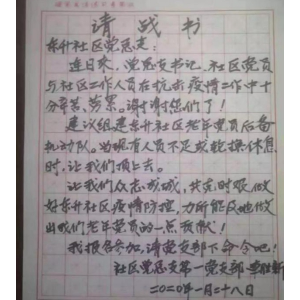 请战书
东升社区党总支:
连日来,党总支书记、社区党员
与社区工作人员在抗击疫情工作中十
分辛苦、劳累。谢谢您们了!
建议组建东升社区老年党员后备
机动队。为现有人员不足或轮换休息
时,让我们顶上去。
让我们众志成城,共克时艰,做
好东升社区疫情防控,力所能及地做
出我们老年党员的一点贡献!
我报名参加,请党支部下命令吧!
社区党总支第一党支部
二〇二〇年一月二十八日